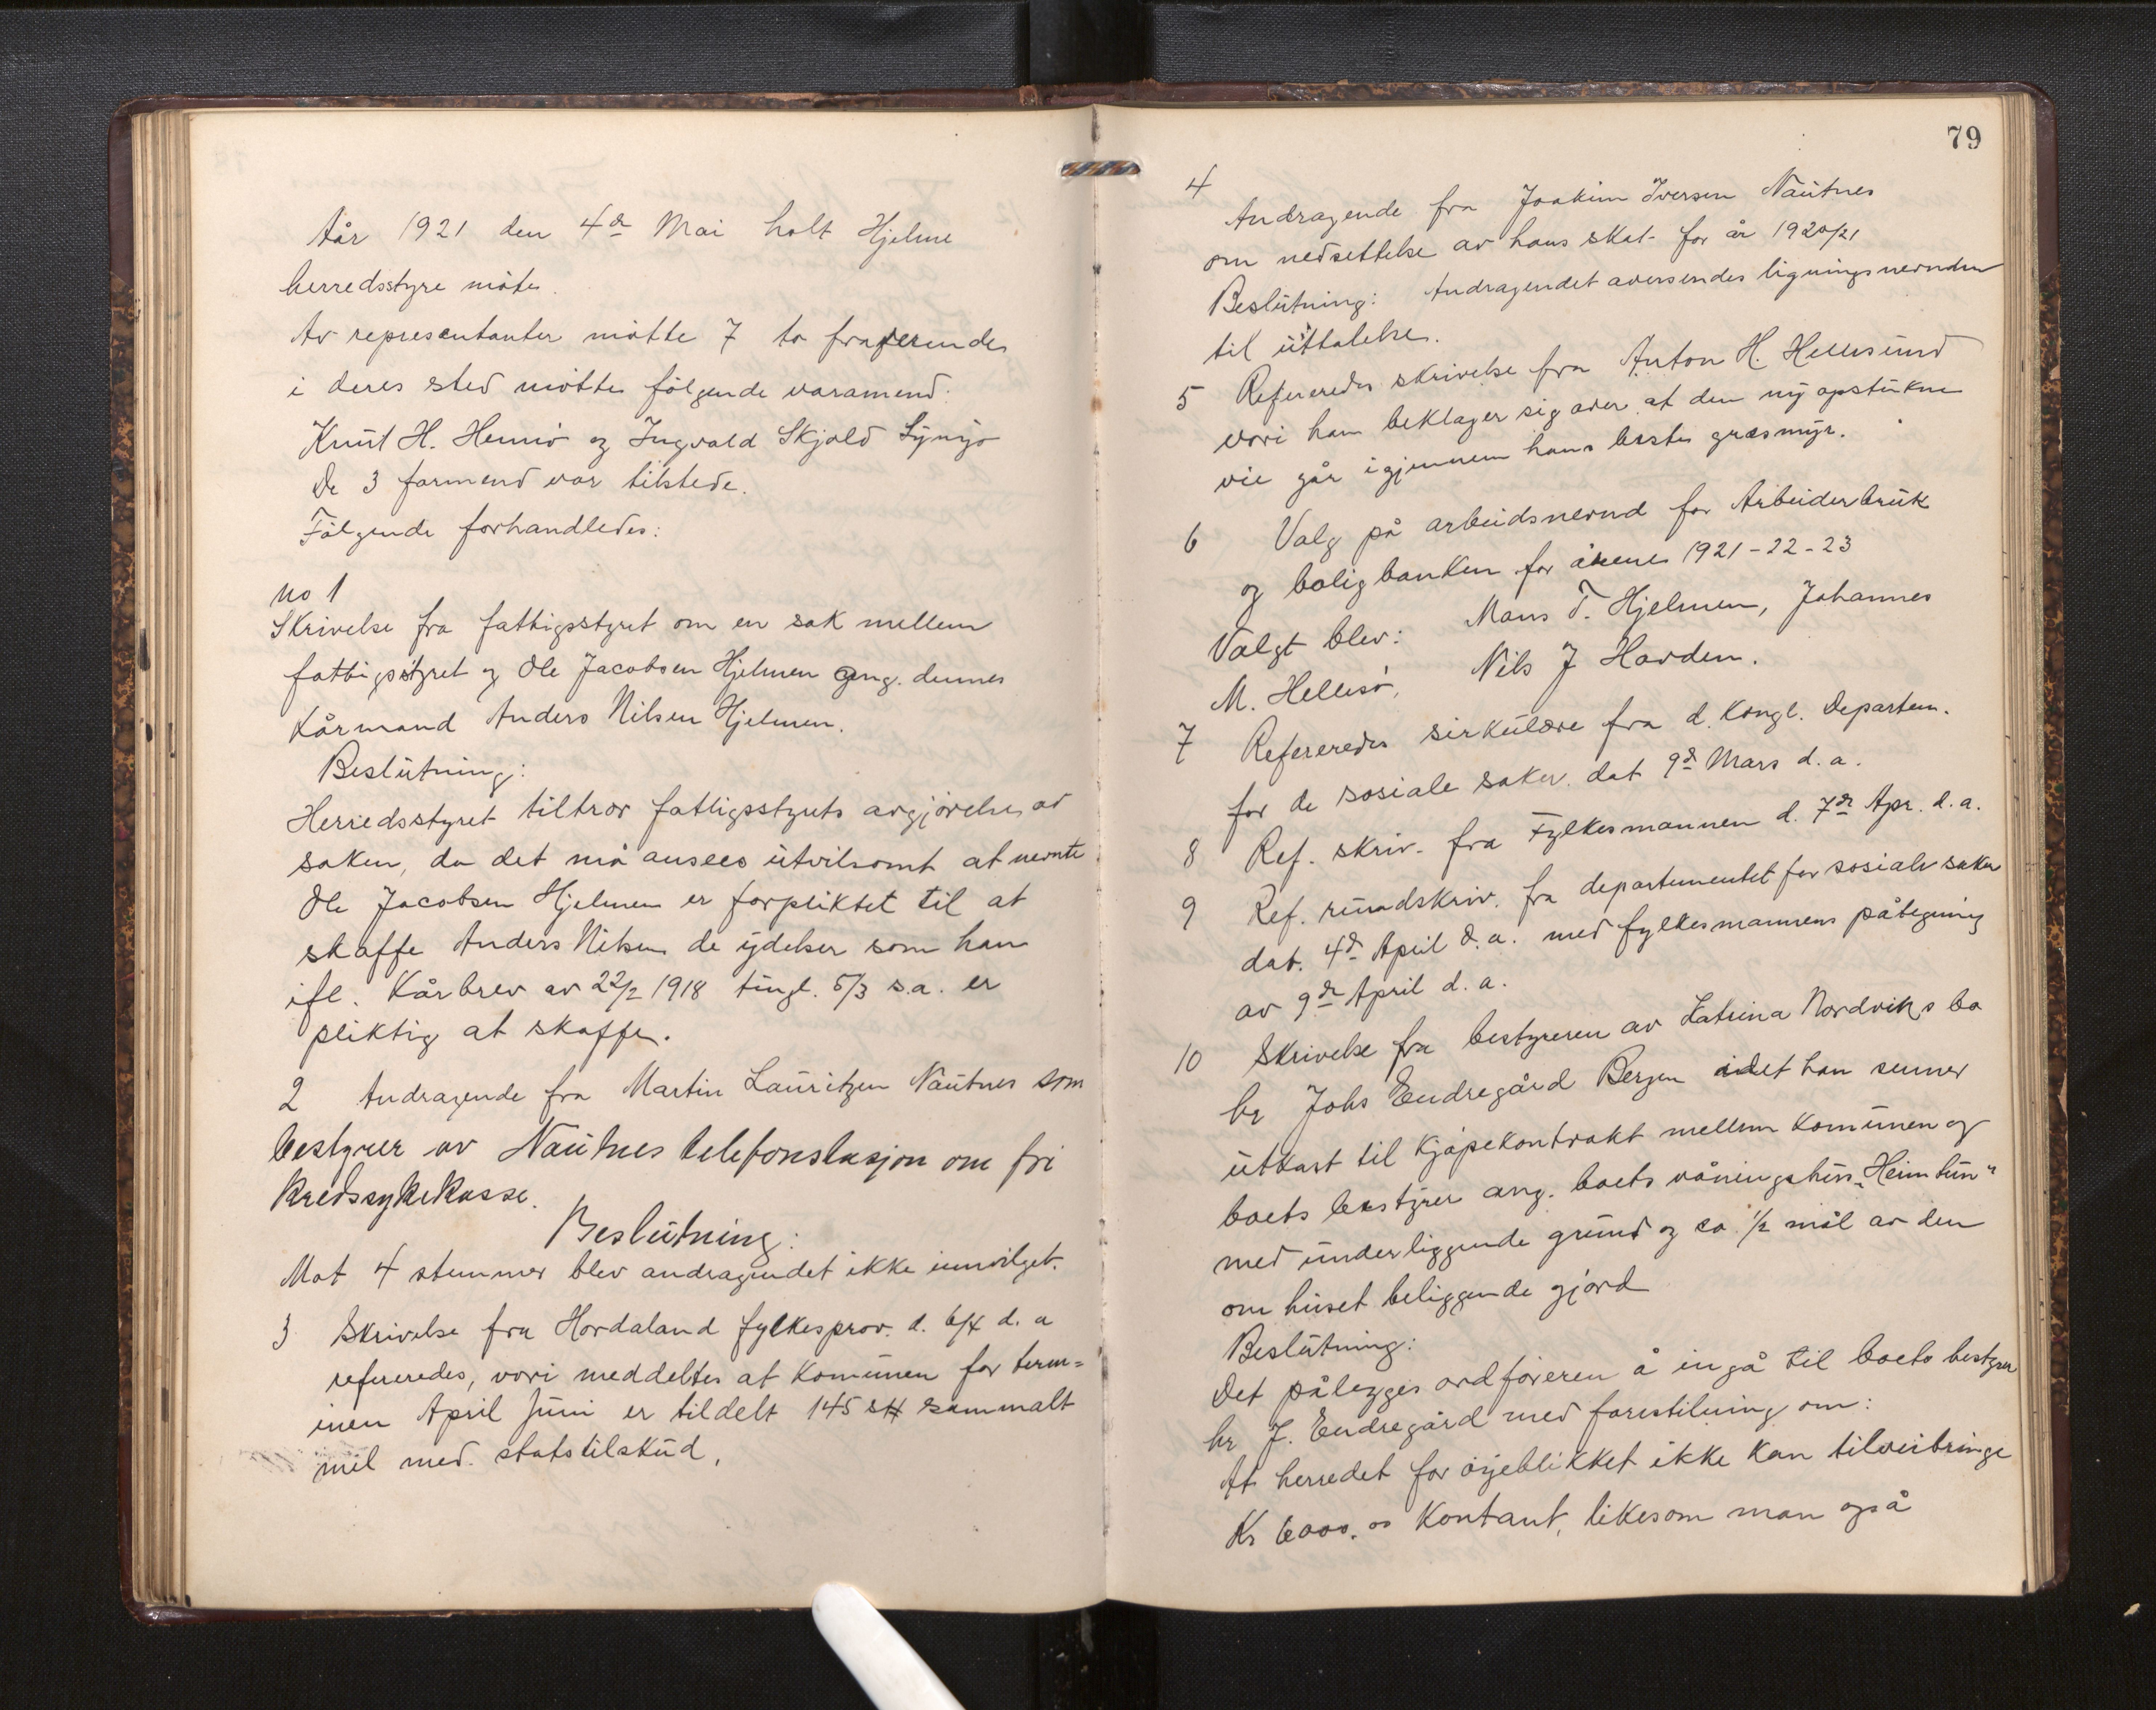 År 1921 den 4de Mai holt Hjelme
herredsstyre møte.
Av representanter møtte 7 to fraverende
i deres sted møtte følgende varamend:
Knut H. Hernø og Ingvald Skjold Lyngø
De 3 formend var tilstede.
Følgende forhandledes:
No 1
Skrivelse fra fattigsstyret om en sak mellem
fattigsstyret og Ole Jacobsen Hjelmen ang. dennes
Kårmand Anders Nilsen Hjelmen.
Beslutning:
Herredsstyret tiltror fattigsstyrets avgjørelse av
saken, da det må ansees utvilsomt at nevnte
Ole Jacobsen Hjelmen er forpliktet til at
skaffe Anders Nilsen de ydelser som han
ifl. Kårbrev av 22/2 1918 tingl. 5/3 s.a. er
pliktig at skaffe.
2 Andragende fra Martin Lauritzen Nautnes som
bestyrer av Nautnes telefonstasjon om fri
Kredssykekasse.
Beslutning:
Mot 4 stemmer blev andragendet ikke innvilget.
3 Skrivelse fra Hordaland fylkesprov. d. 6/4 d. a
refereredes, vori meddeltes at Komunen for term=
inen April Juni er tildelt 145 sk sammalt
mel med. statstilskud.
79
4
Andragende fra Joakim Iversen Nautnes
om nedsettelse av hans skat for år 1920/21
Beslutning: Andragendet oversendes ligningsnevnden
til uttalelse.
5 Refereredes skrivelse fra Anton H. Hellesund
vori han beklager sig over at den ny opstukne
vei går igjennem hans beste græsmyr.
6 Valg på arbeidsnevnd for Arbeiderbruk
og boligbanken for årene 1921-22-23
Valgt blev: Mons T. Hjelmen, Johannes
M. Hellesø, Nils J Horden.
7 Refereredes sirkulære fra d. Kongl. Departem.
for de sosiale saker. dat 9de Mars d. a.
8 Ref. skriv. fra Fylkesmannen d. 7de Apr. d. a.
9 Ref. rundskriv. fra departementet for sosiale saker
dat. 4de April d. a. med fylkesmannens påtegning
av 9de April d. a.
10 Skrivelse fra bestyreren av Katrina Nordviks bo
hr Johs Endregård Bergen idet han sender
utkast til Kjøpekontrakt mellem Komunen og
boets bestyrer ang. boets våningshus „Heimtun"
med underliggende grund og ca 1/2 mål av den
om huset beliggende gjord
Beslutning:
Det pålegges ordføreren å ingå til boets bestyrer
hr J. Endregård med forestilning om:
At herredet for øyeblikket ikke kan tilveibringe
Kr 6000.00 Kontant, likesom man også